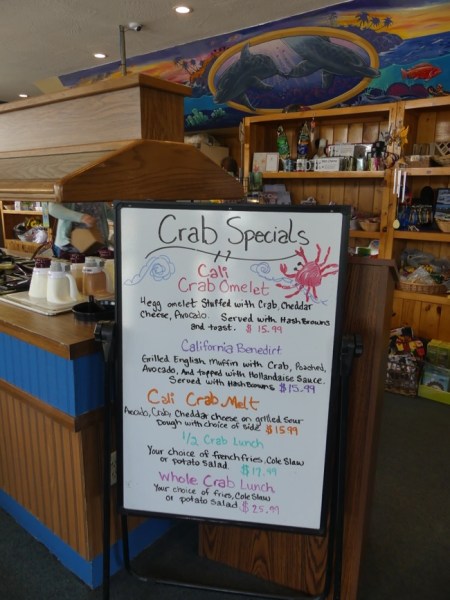 Crab Specials
Cali
Crab Omelet
4 egg omelet Stuffed with Crab, Cheddar
Cheese, Avocado. Served with Hash Browns
and toast. $15.99
California Benedict
Grilled English Muffin with Crab, Poached,
Avocado, And topped with Hollandaise Sauce.
Served with HashBrowns $15.99
Cali Crab Melt
Avocado, Crab, Cheddar cheese on grilled Sour
Dough with choice of side $15.99
1/2 Crab Lunch
Your choice of french fries, Cole Slaw
or potato Salad. $17.99
Whole Crab Lunch
Your choice of fries, Cole Slaw
or potato Salad $25.99